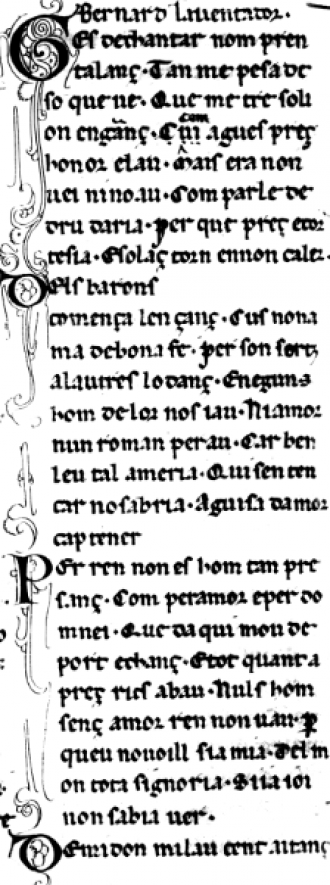 Bernard Lauentador.
Ges dechantar nom pren
talanç. Tan me pesa de
so que ue. Que me tre soli
on enganç. Cū com agues preç
honor elau. Mais era non
uei nino.au. Com parle de
dru daria. per que preç ecor
tesia. Esolaç torn ennon caler.
Dels barons
comença len çanç. Cus nona
ma debona fe. per son sorz
alautres lo danç. Eneguns
hom de lor nos iau. Niamor
nun roman perau. Car ben
leu tal ameria. Qui sen ten
car nosabria. Aguisa damor
captener
Per ren non es hom tan pre
sanç. Com peramor eper do
mnei. Que da qui mou de
port echanç. Etot quanta
preç ries abau. Nuls hom
senç amor ren non uau. p
queu nouoill sia mia. Del m
on tota signoria. Siia ioi
non sabia uer.
De midon milau cent aitanç